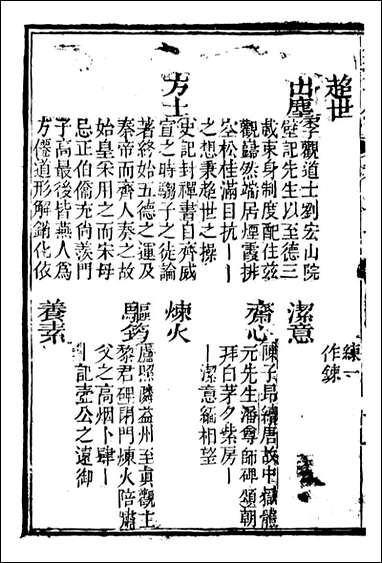 超世
出塵
李觀道士劉宏山院
壁記先生以至德三
載束身制度配住茲
觀巋然端居煙霞排
空松桂滿目抗丨丨
之想秉超世之操
方士
史記封禪書自齊威
宣之時騶子之徒論
著終始五德之運及
秦帝而齊人奏之故
始皇采用之而宋毋
忌正伯僑充尚羨門
子高最後皆燕人為
方僊道形解銷化依
練一
作鍊
潔意
齋心
陳子昂續唐故中嶽體
元先生潘尊師碑頌朝
拜白茅夕紫房丨
丨潔意緬相望
煉火
驅筇
盧照鄰益州至真觀主
黎君碑閉門煉火陪肅
父之高烟卜肆丨
丨記壺公之遠御
養素